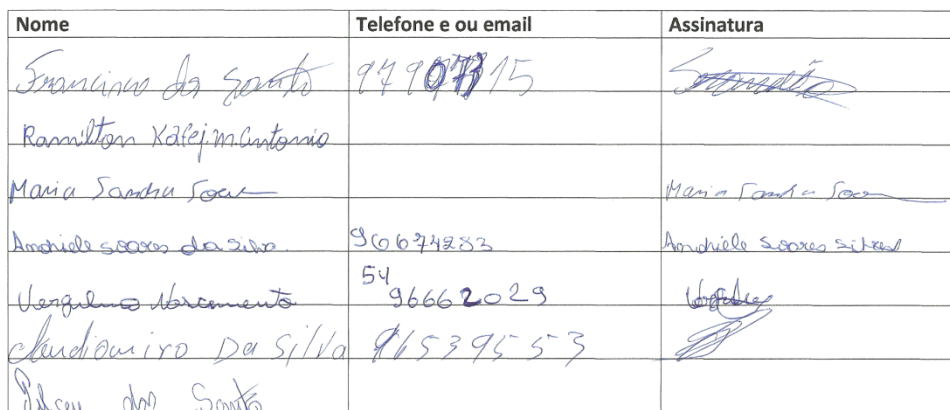 Nome Telefone e ou email Assinatura
Francisco dos Santo 97907315
Ramilton m. Antonio
Maria Sandra Soar Maria Sandra Soar
Andriele soares da Silva 96674283 Andriele Soares Silva
54
Vergilino Nascimento 96662029
Claudiomiro Da Silva 965395553
dos Santo